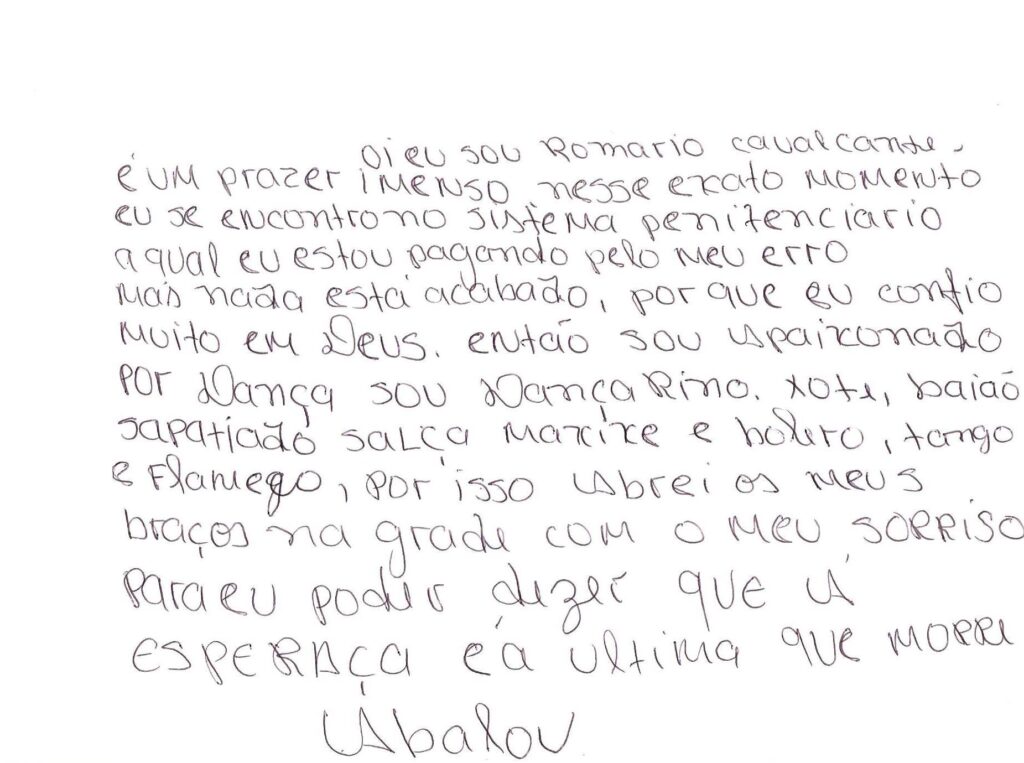 Oi eu sou Romario cavalcante.
é um prazer imenso nesse exato momento
eu se encontro no sistema penitenciario
a qual eu estou pagando pelo meu erro
mais nada está acabado, por que eu confio
muito em Deus. então sou Apaixonado
por Dança sou DançaRino. xote, baião
sapatiado salça maxixe e bolero, tango
e Flamego, por isso Abrei os meus
braços na grade com o meu SORRiSO
para eu poder dizer que A
ESPERAÇA e á ultima que morre
Abalou